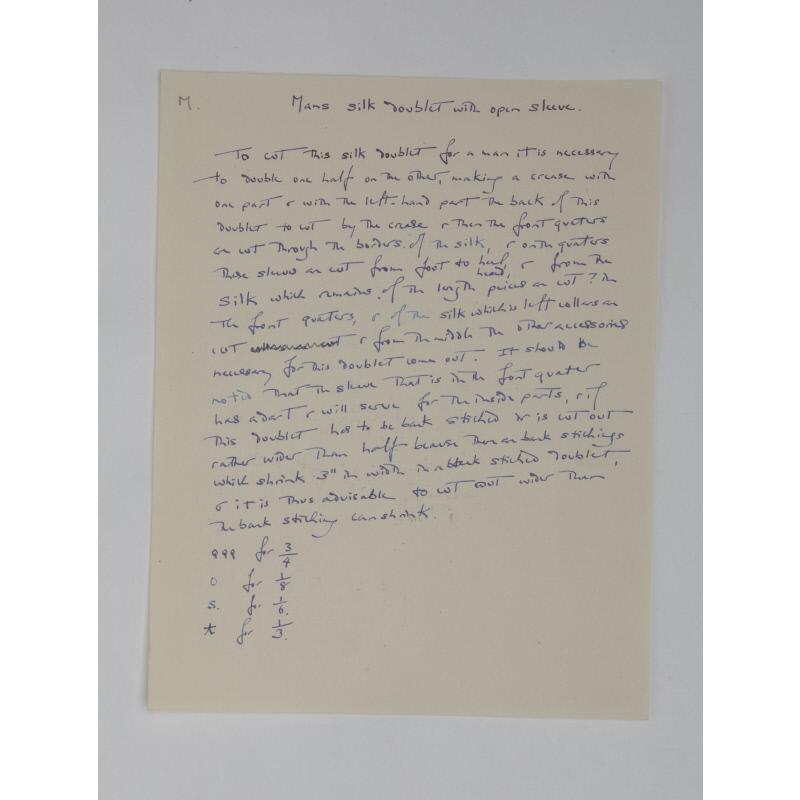 M. Mans silk doublet with open sleeve.
To cut this silk doublet for a man it is necessary
to double one half on the other, making a crease with
one part & with the left-hand part the back of this
doublet to cut by the crease & then the front quaters
are cut through the borders of the silk, & on the quaters
these sleeves are cut from foot to head, & from the
silk which remains of the length pieces are cut? In
the front quaters, & of the silk which is left collars are
cut & from the middle the other accessories
necessary for this doublet come out. It should be
noted that the sleeve that is in the front quater
has a dart & will serve for the inside parts, & if
this doublet has to be back stiched it is cut out
rather wider than half because there are back stichings
which shrink 3" in width in a back stiched doublet,
& it is thus advisable to cut out wider then
the back stiching can shrink.
qqq for 3/4
o for 1/8
s. for 1/6.
t for 1/3.